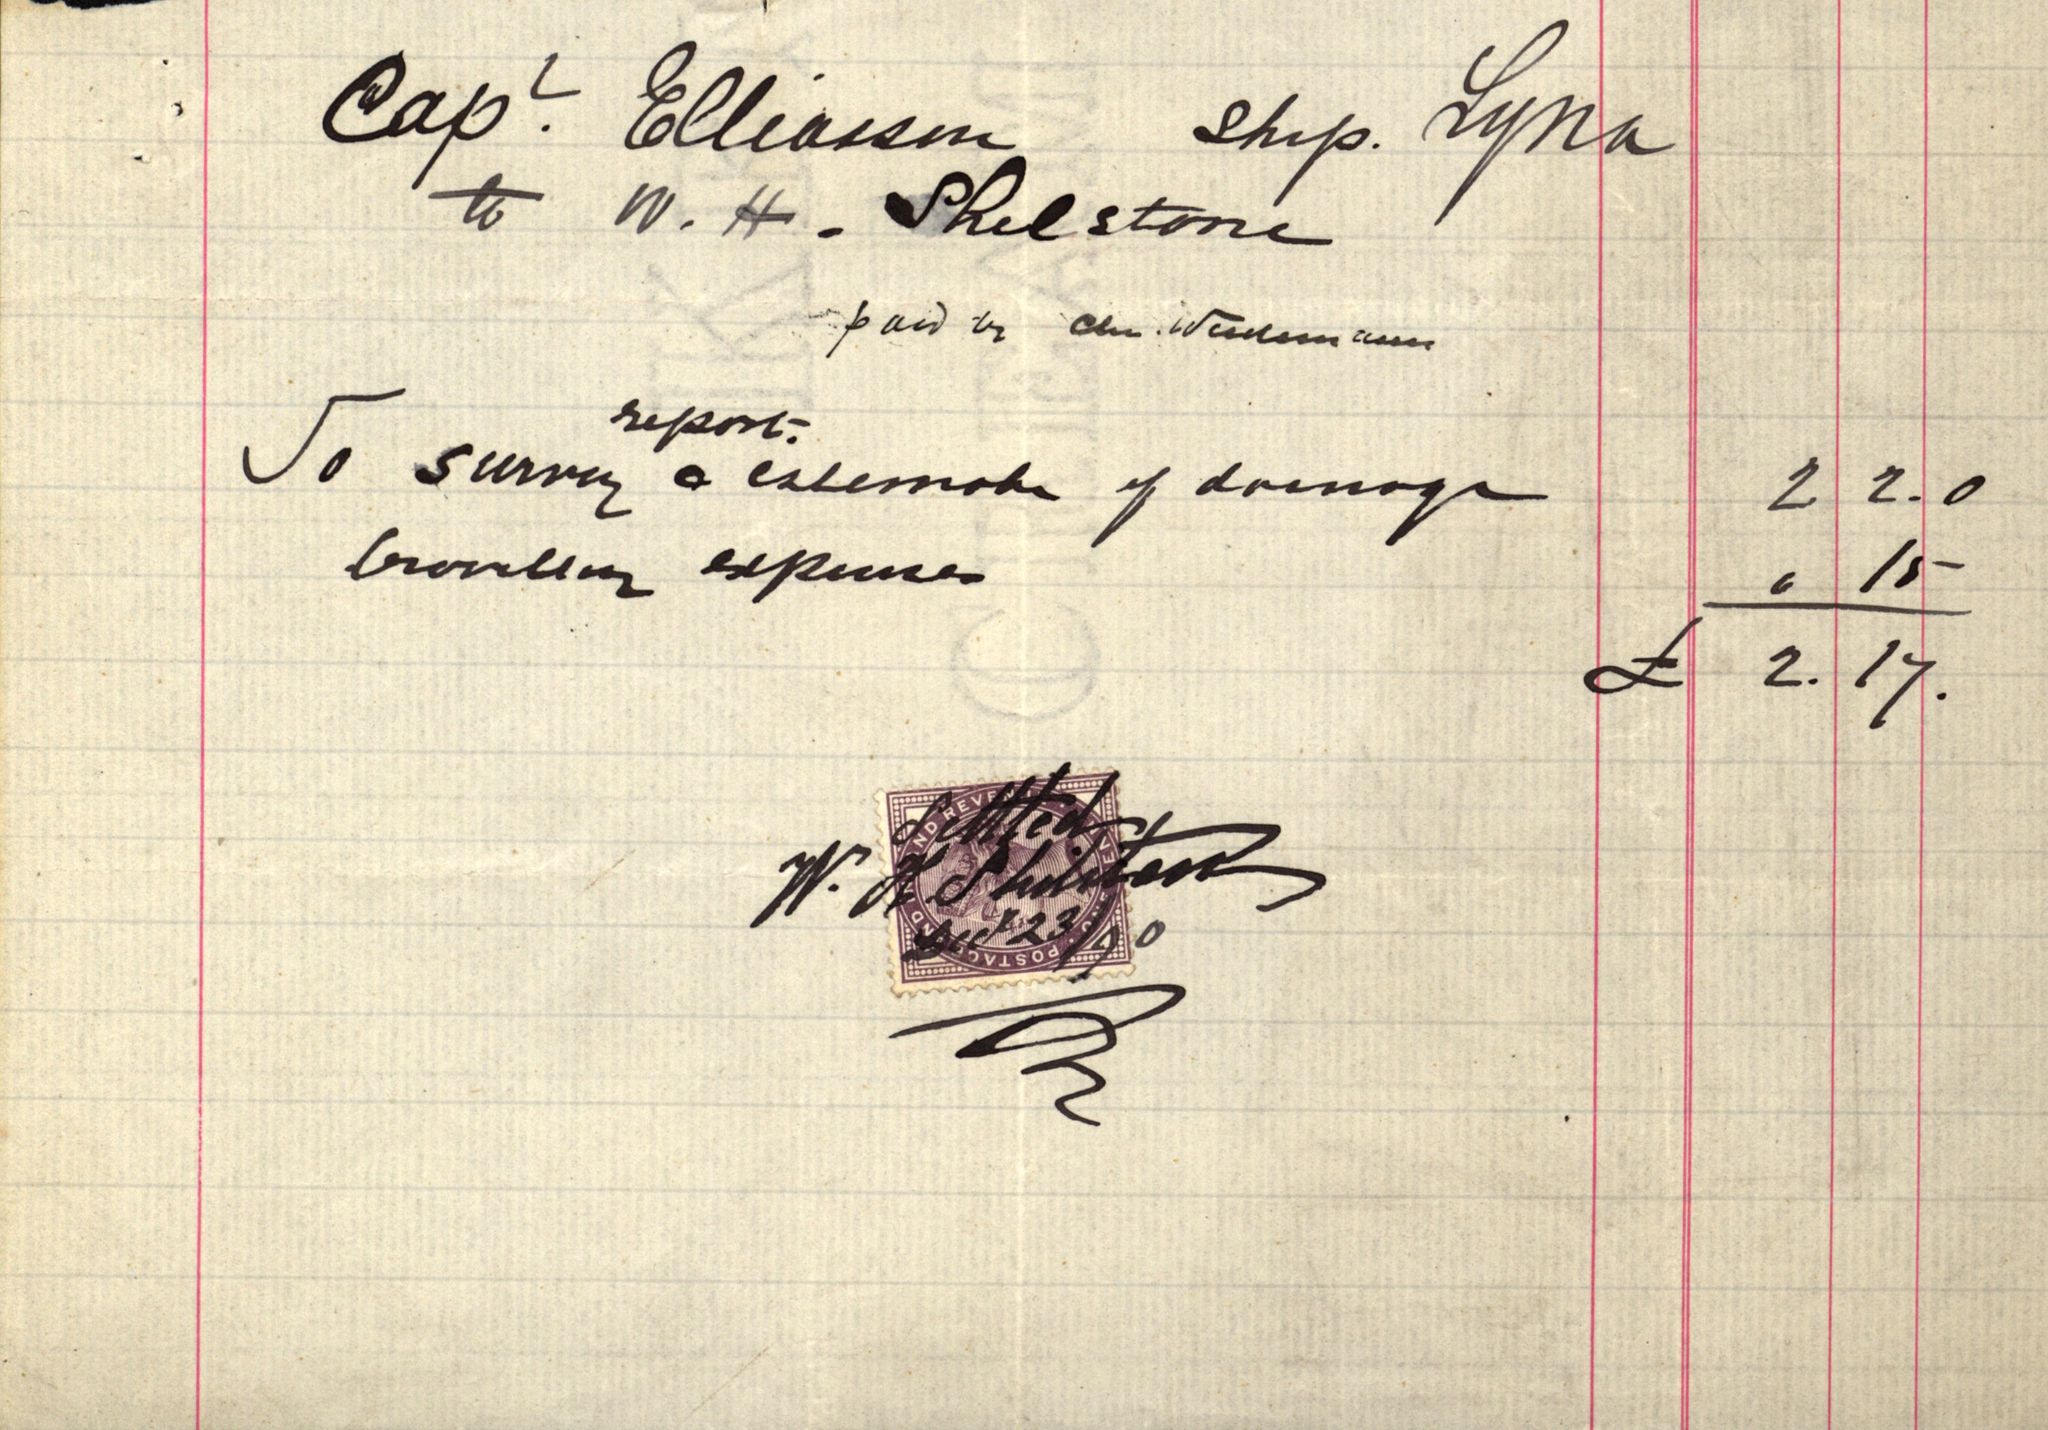 Capt. Eliasson ship. Lyna
to W. H. Shelstone
paid by Chr. Wiedemann
report.
To survey & estemate of damage 2 2. 0
travelling expenses 0 15
£ 2. 17.
Settled
W. H. Shelstone
Decr 23/90
POSTAGE AND REVENUE